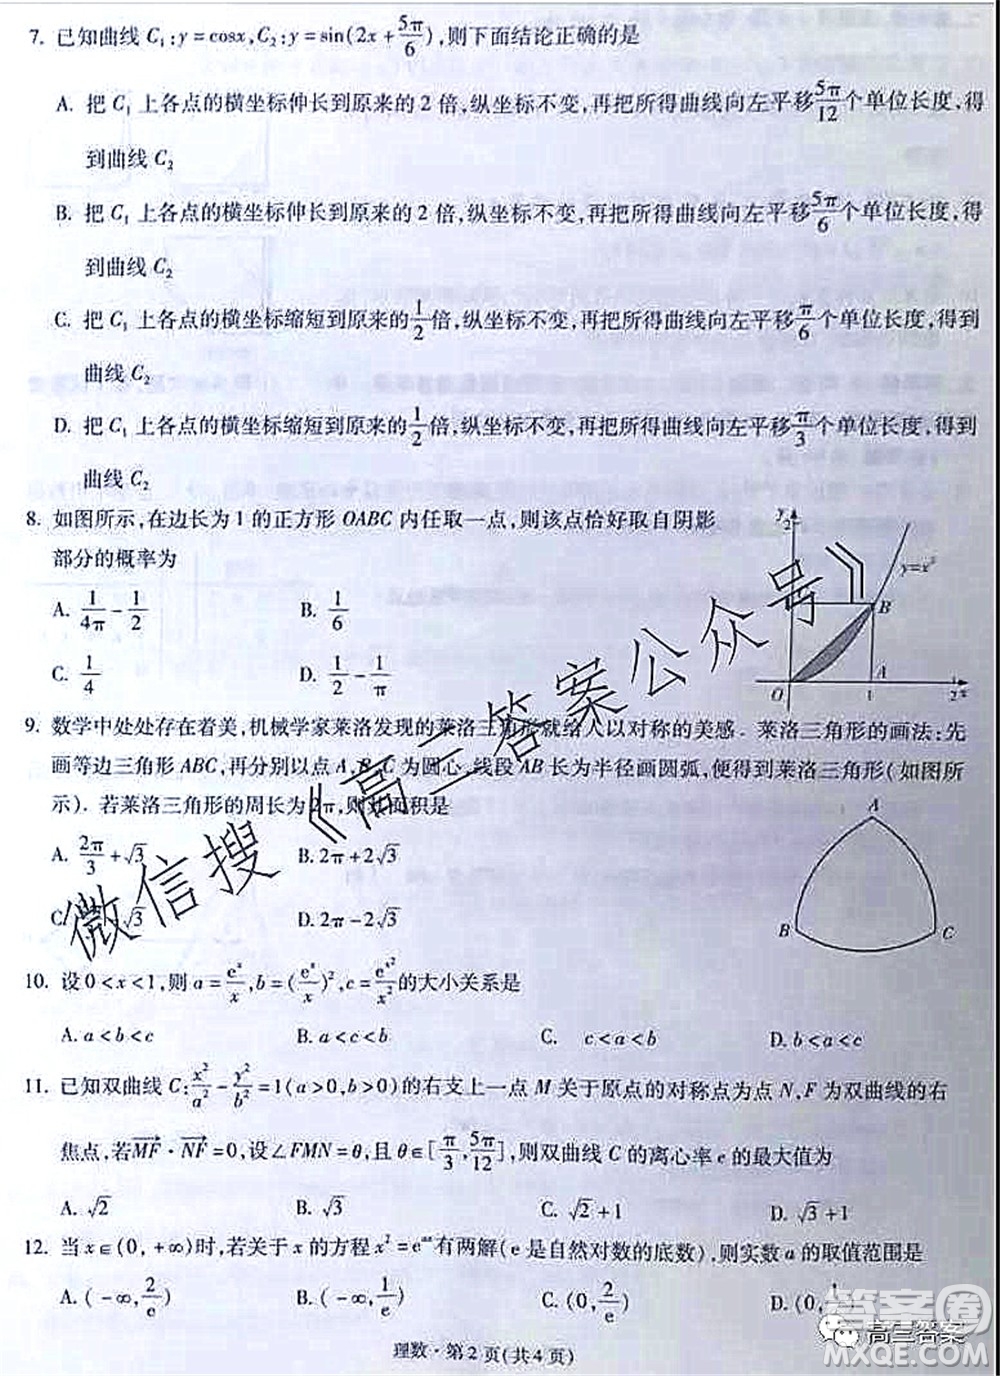 7. 已知曲线 C₁:y=cosx,C₂:y=sin(2x+5π/6),则下面结论正确的是
A. 把 C₁ 上各点的横坐标伸长到原来的 2 倍,纵坐标不变,再把所得曲线向左平移5π/12个单位长度,得
到曲线 C₂
B. 把 C₁ 上各点的横坐标伸长到原来的 2 倍,纵坐标不变,再把所得曲线向左平移5π/6个单位长度,得
到曲线 C₂
C. 把 C₁ 上各点的横坐标缩短到原来的1/2倍,纵坐标不变,再把所得曲线向左平移π/6个单位长度,得到
曲线 C₂
D. 把 C₁ 上各点的横坐标缩短到原来的1/2倍,纵坐标不变,再把所得曲线向左平移π/3个单位长度,得到
曲线 C₂
8. 如图所示,在边长为 1 的正方形 OABC 内任取一点,则该点恰好取自阴影
部分的概率为
A. 1/4π-1/2 B. 1/6
C. 1/4 D. 1/2-1/π
y 2 y=x² B O 1 A 2 x
9. 数学中处处存在着美,机械学家莱洛发现的莱洛三角形就给人以对称的美感. 莱洛三角形的画法:先
画等边三角形 ABC,再分别以点 A,B,C 为圆心,线段 AB 长为半径画圆弧,便得到莱洛三角形(如图所
示). 若莱洛三角形的周长为 2π,则其面积是
A. 2π/3+√3 B. 2π+2√3
C. √3 D. 2π-2√3
A
B C
10. 设 0<x<1,则 a=eˣ/x,b=(eˣ/x)²,c=e^x²/x²的大小关系是
A. a<b<c B. b<a<c C. c<a<b D. a<c<b
11. 已知双曲线 C:x²/a²-y²/b²=1(a>0,b>0)的右支上一点 M 关于原点的对称点为点 N,F 为双曲线的右
焦点,若MF·NF=0,设∠FMN=θ,且 θ∈[π/3,5π/12],则双曲线 C 的离心率 e 的最大值为
A. √2 B. √3 C. √2+1 D. √3+1
12. 当 x∈(0,+∞)时,若关于 x 的方程 x²=e^ax有两解(e 是自然对数的底数),则实数 a 的取值范围是
A. (-∞,2/e) B. (-∞,1/e) C. (0,2/e) D. (0,1/e)
理数·第2页(共4页)
微信搜《高三答案公众号》
高三答案
答案圈
MXQE.COM